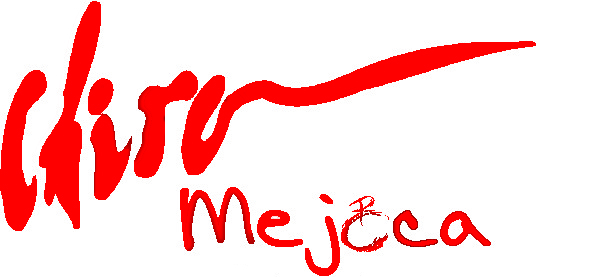 Chiro
Mejoca